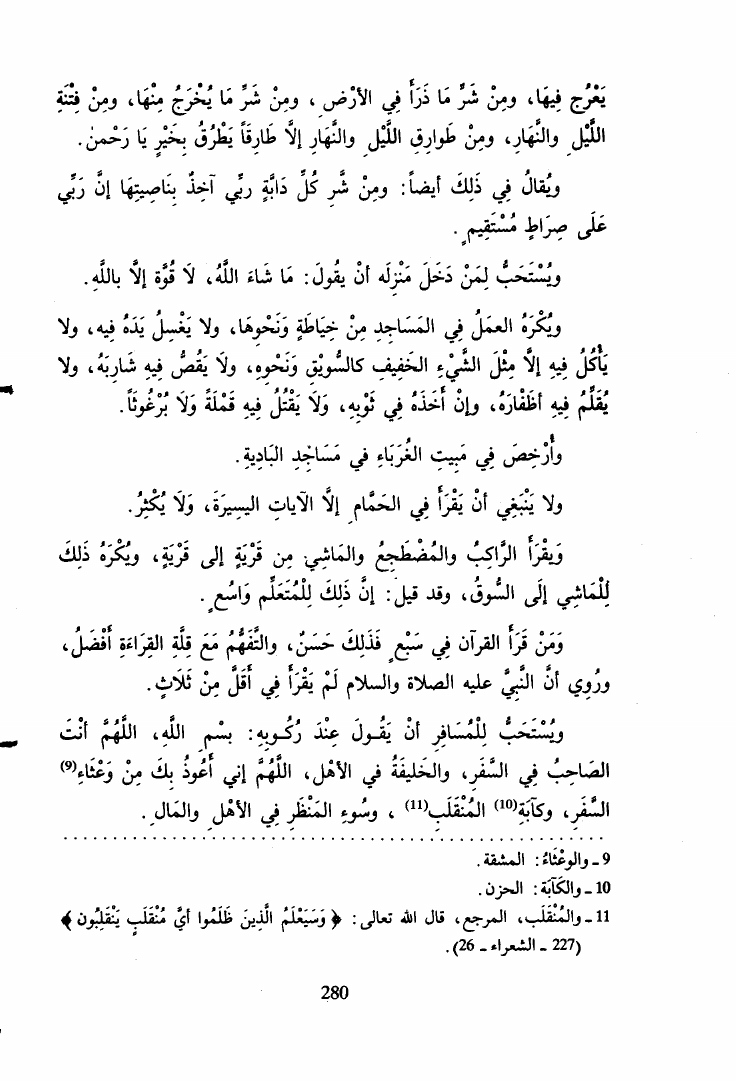 يَعْرُجُ فِيهَا، ومِنْ شَرِّ مَا ذَرَأَ فِي الأرْضِ، ومِنْ شَرِّ مَا يُخْرَجُ مِنْهَا، ومِنْ فِتْنَةِ
اللَّيْلِ والنَّهَارِ، ومِنْ طَوارِقِ اللَّيْلِ والنَّهَارِ إلَّا طَارِقاً يَطْرُقُ بِخَيْرٍ يَا رَحْمنُ.
ويُقالُ فِي ذَلِكَ أيضاً: ومِنْ شَّرِ كُلِّ دَابَّةٍ رَبِّي آخِذٌ بِنَاصِيتِهَا إنَّ رَبِّي
عَلَى صِرَاطٍ مُسْتَقِيمٍ.
ويُسْتَحَبُّ لِمَنْ دَخَلَ مَنْزِلَه أنْ يقُولَ: مَا شَاءَ اللَّهُ، لَا قُوَّة إلَّا باللَّهِ.
ويُكْرَهُ العمَلُ فِي المَسَاجِدِ مِنْ خِيَاطَةٍ وَنَحْوِهَا، ولا يَغْسِلُ يَدَهُ فِيه، ولا
يَأْكُلُ فِيهِ إلَّا مِثْلَ الشَّيْءِ الخَفِيفِ كالسُّوِيْقِ وَنَحْوِهِ، ولَا يَقُصُّ فِيهِ شَارِبَهُ، ولا
يُقَلِّمُ فِيهِ أظْفَارَهُ، وإنْ أَخَذَهُ فِي ثَوْبِهِ، وَلَا يَقْتُلُ فِيهِ قَمْلَةً وَلَا بُرْغُوثاً.
وأُرْخِصَ فِي مَبِيتِ الغُرَبَاءِ في مَسَاجِدِ البَادِيةِ.
ولا يَنْبَغِي أنْ يَقْرَأَ فِي الحَمَّامِ إلَّا الآيَاتِ اليسِيرَةَ، وَلَا يُكْثِرُ.
وَيقْرَأُ الرَّاكِبُ والمُضْطَجِعُ والمَاشِي مِن قَرْيَةٍ إلى قَرْيَةٍ، ويُكْرَهُ ذَلِكَ
لِلْمَاشِي إلَى السُّوقُ، وقد قيل: إنَّ ذَلِكَ لِلْمُتَعَلِّمِ وَاسُعٍ.
وَمَنْ قَرَأَ القرآن فِي سَبْعٍ فَذَلِكَ حَسَنٌ، والتَّفَهُّمُ مَعَ قِلَّةِ القِرَاءَةِ أَفْضَلُ،
ورُوِي أنَّ النَّبِيَّ عليه الصلاة والسلام لَمْ يَقْرَأْ فِي أقَلَّ مِنْ ثَلَاثٍ.
ويُسْتَحَبُّ لِلْمُسَافِرِ أنْ يَقُـولَ عِنْدَ رُكُـوبِهِ: بِسْمِ اللَّهِ، اللَّهُمَّ أنْتَ
الصَاحِبُ فِي السَّفَرِ، والخَلِيفَةُ في الأهْلِ، اللَّهُمَّ إني أَعُوذُ بِكَ مِنْ وَعْثَاءِ(9)
السَّفَرِ، وكآبَةِ(10) المُنْقَلَبِ(11) ، وسُوءِ المَنْظَرِ فِي الأهْلِ والمَالِ.
9 ـ والوعْثَاءُ: المشقة.
10 ـ والكَآبَة: الحزن.
11 ـ والمُنْقَلَب، المرجع، قال الله تعالى: ﴿ وَسَيَعْلَمُ الَّذِينَ ظَلَمُوا أيَّ مُنْقَلَبٍ يَنْقَلِبُون ﴾
(227 ـ الشعراء ـ 26).
280